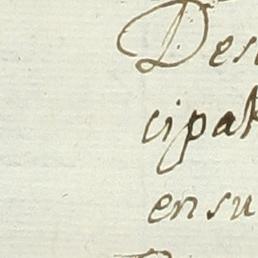 Des
cipal
en su